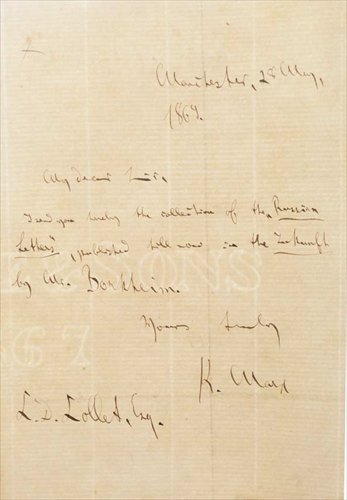 Manchester, 28 May,
1869.
My dear Sir,
I send you hereby the collection of the "Russian
Letters", published till now in the Zukunft
by Mr. Borkheim.
Yours truly
K. Marx
C. D. Collet, Esq.